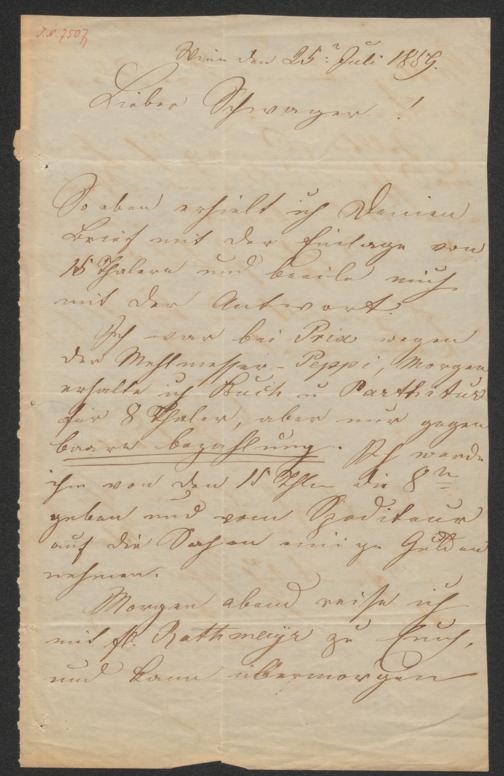 I.N. 7507
Wien den 25t Juli 1859.
Lieber Schwager!
So eben erhielt ich Deinen
Brief mit der Einlage von
15 Thalern und beeile mich
mit der Antwort.
Ich war bei Prix wegen
der Mehlmesser-Peppi, Morgen
erhalte ich Buch u Parthitur
für 8 Thaler, aber nur gegen
baare bezahlung. Ich werde
ihm von den 15 Thlr die 8
geben und vom Spediteur
auf die Sachen einige Gulden
nehmen.
Morgen abend reise ich
mit Rathmayr zu Euch,
und kann übermorgen